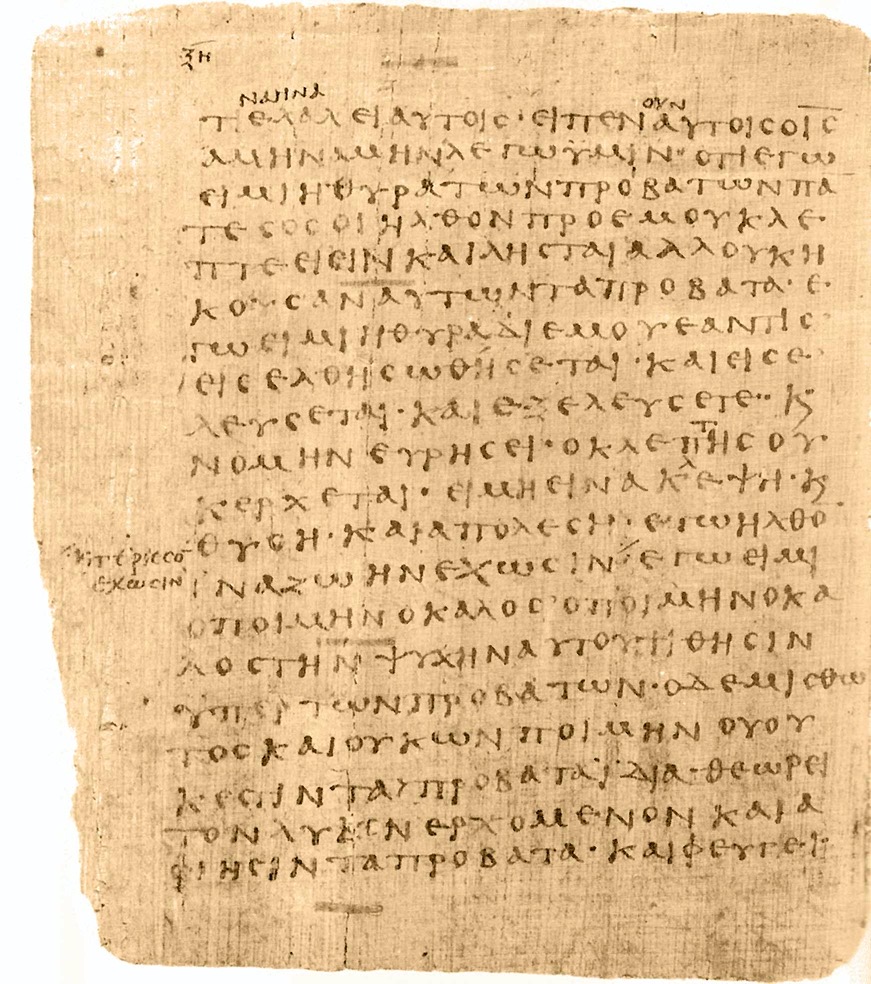 ΞΗ
ΝΑΗΝΑ ΟΥΝ
ΤΙΕΛΑΛΕΙΑΥΤΟΙϹ·ΕΙΠΕΝΑΥΤΟΙϹΟΙ̅Ϲ̅
ΑΜΗΝΑΜΗΝΛΕΓΩΥΜΙΝ·ΟΤΙΕΓΩ
ΕΙΜΙΗΘΥΡΑΤΩΝΠΡΟΒΑΤΩΝΠΑ
ΤΕϹΟϹΟΙΗΛΘΟΝΠΡΟΕΜΟΥΚΛΕ
ΠΤΕΕΙϹΙΝΚΑΙΛΗϹΤΑΙΑΛΛΟΥΚΗ
ΚΟΥϹΑΝΑΥΤΩΝΤΑΠΡΟΒΑΤΑ·Ε
ΓΩΕΙΜΙΗΘΥΡΑΔΙΕΜΟΥΕΑΝΤΙϹ
ΕΙϹΕΛΘΗϹΩΘΗϹΕΤΑΙ·ΚΑΙΕΙϹΕ
ΛΕΥϹΕΤΑΙ·ΚΑΙΕΞΕΛΕΥϹΕΤΕ·Ϗ
Τ
ΝΟΜΗΝΕΥΡΗϹΕΙ·ΟΚΛΕΠΗϹΟΥ
Λ
ΚΕΡΧΕΤΑΙ·ΕΙΜΗΕΙΝΑΚΕΨΗ·Ϗ
ΘΥϹΗ·ΚΑΙΑΠΟΛΕϹΗ·ΕΓΩΗΛΘΟ̅
ϏΠΕΡΙϹϹΟ̅
ΕΧΩϹΙΝ
ΙΝΑΖΩΗΝΕΧΩϹΙΝ ΕΓΩΕΙΜΙ
ΟΠΟΙΜΗΝΟΚΑΛΟϹ·ΟΠΟΙΜΗΝΟΚΑ
ΛΟϹΤΗΝΨΥΧΗΝΑΥΤΟΥΤΙΘΗϹΙΝ
ΥΠΕΡΤΩΝΠΡΟΒΑΤΩΝ·ΟΔΕΜΙϹΘΩ
ΤΟϹΚΑΙΟΥΚΩΝΠΟΙΜΗΝΟΥΟΥ
ΚΕϹΤΙΝΤΑΠΡΟΒΑΤΑΙΔΙΑ·ΘΕΩΡΕΙ
ΤΟΝΛΥΚΟΝΕΡΧΟΜΕΝΟΝΚΑΙΑ
ΦΙΗϹΙΝΤΑΠΡΟΒΑΤΑ·ΚΑΙΦΕΥΓΕΙ·